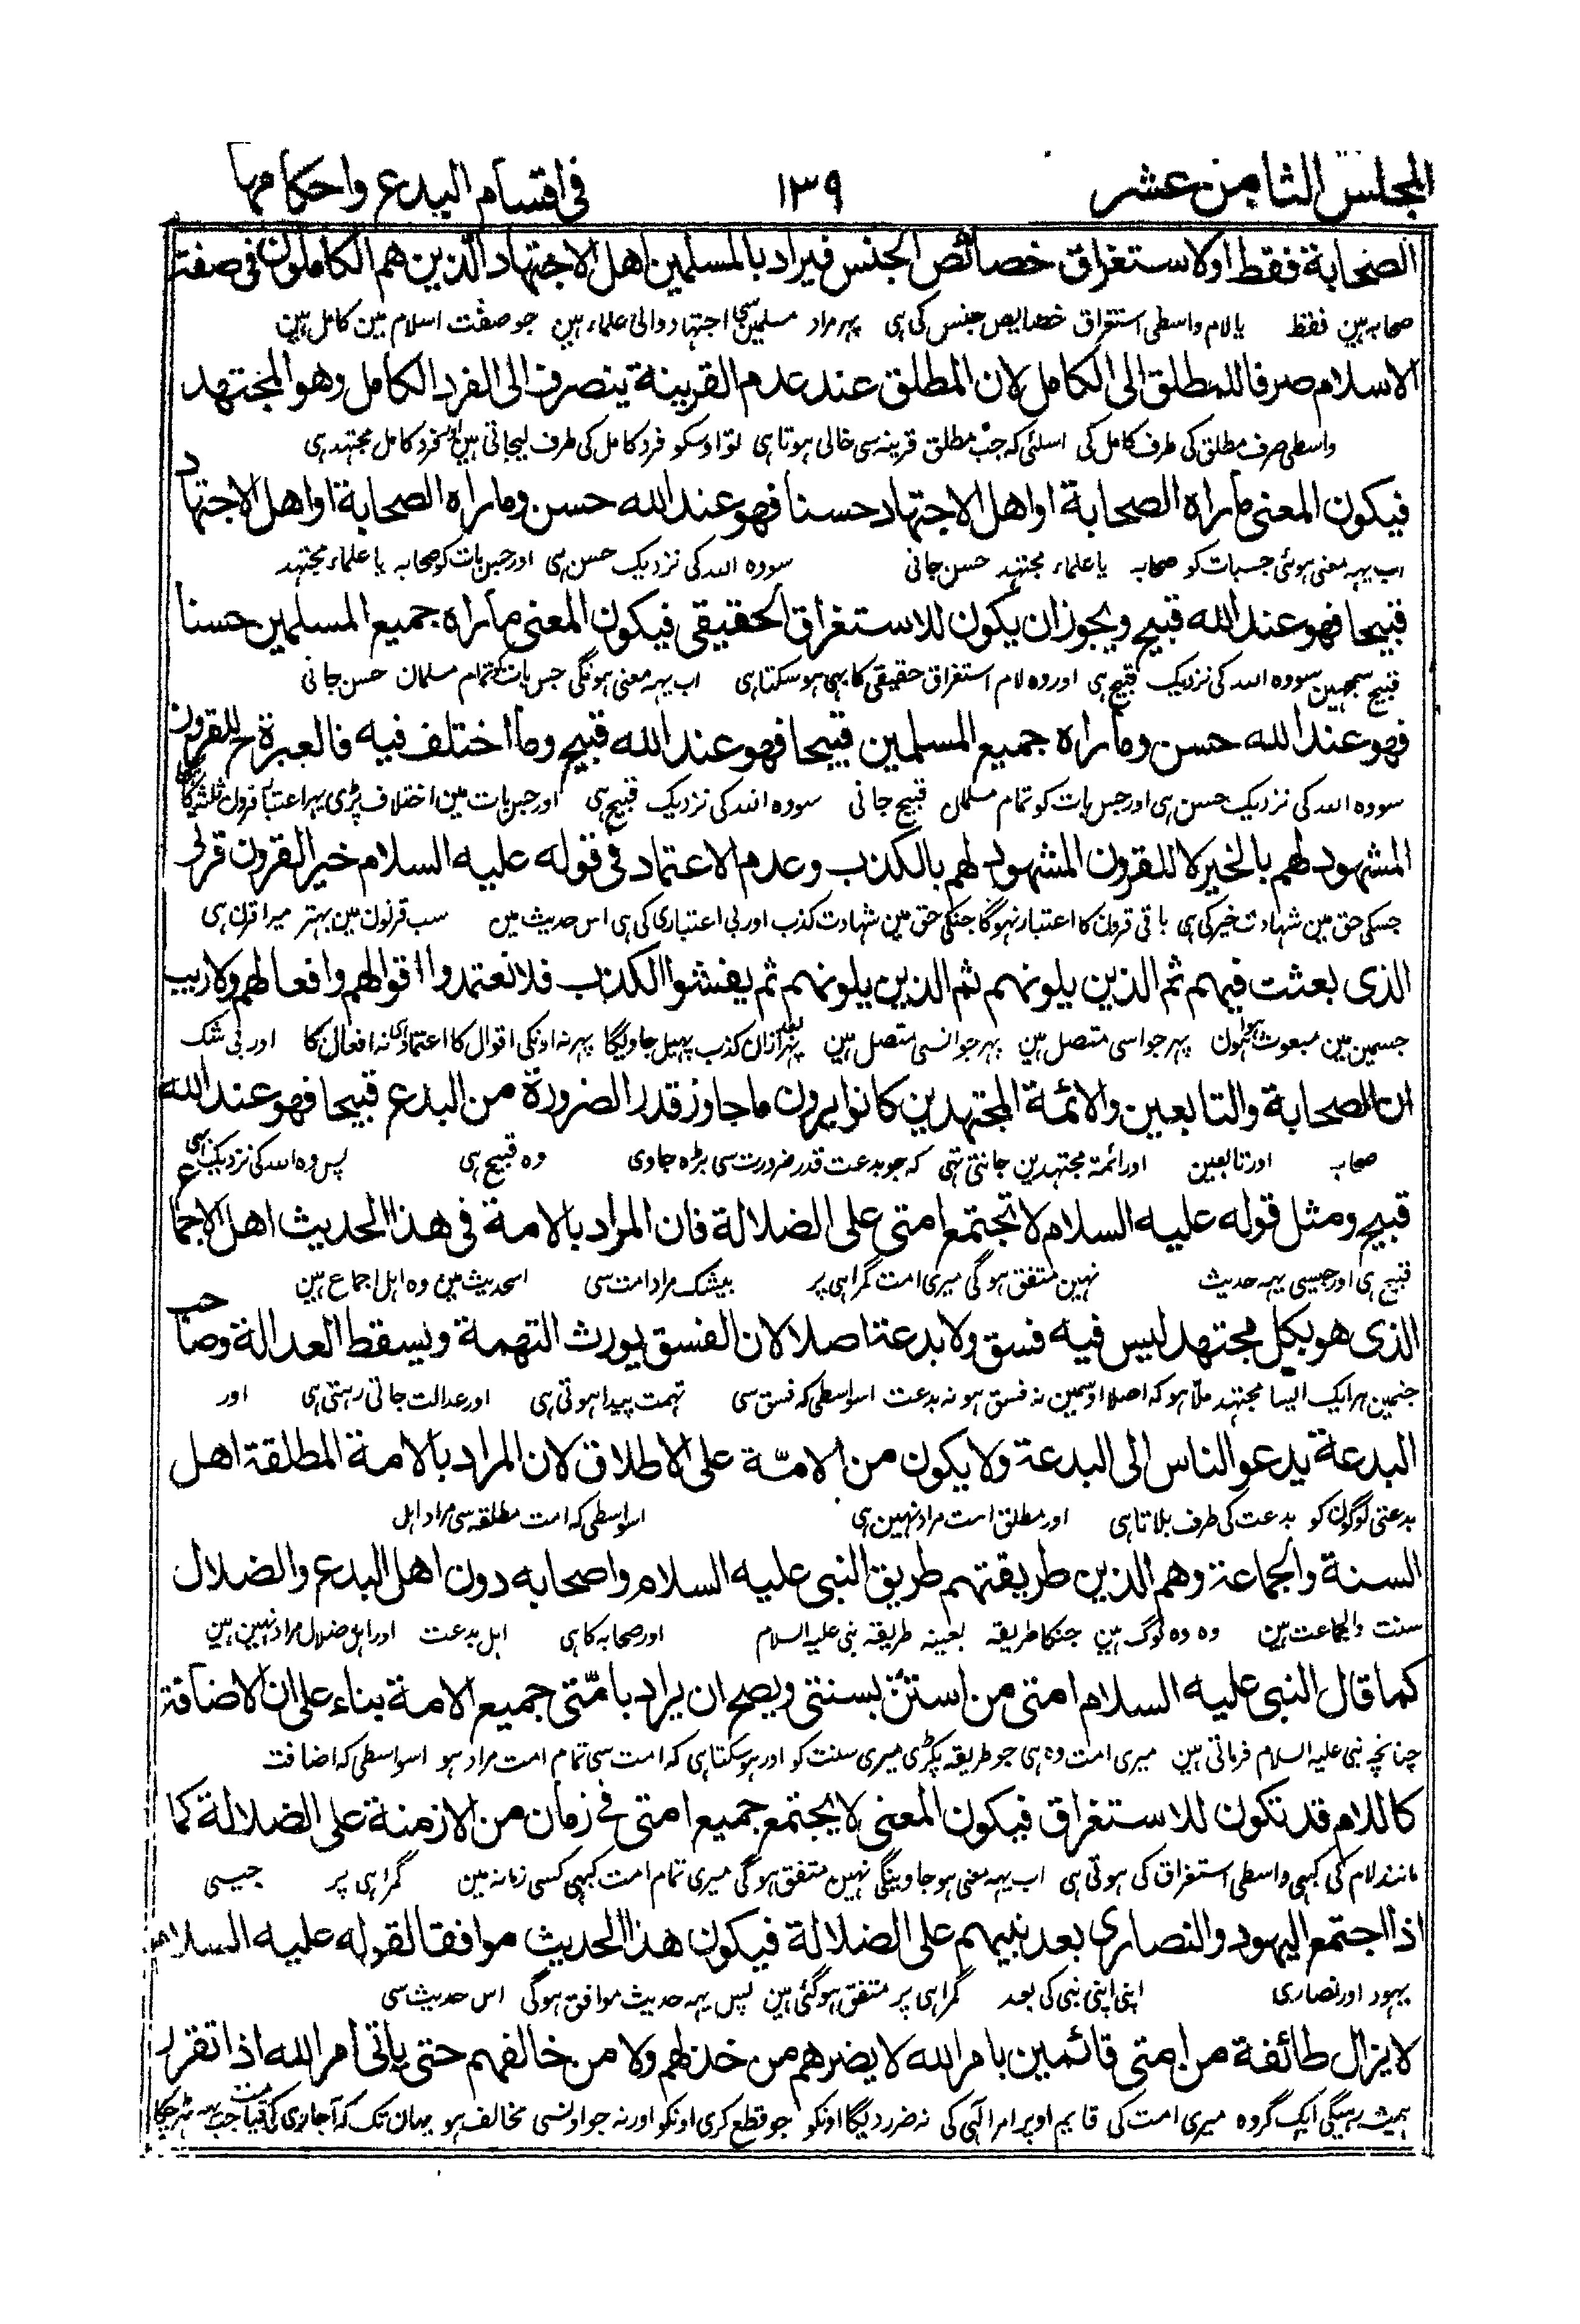 المجلس الثامن عشر ١٣٩ في اقسام البدع واحكامها
الصحابة فقط او لاستغراق خصائص الجنس فيراد بالمسلمين اهل الاجتهاد الذين هم الكاملون في صفة
صحابہ ہین فقط یا لام واسطی استغراق خصایص جنس کی ہی پہر مراد مسلمین سی اجتہاد والی علماء ہین جو صفت اسلام مین کامل ہین
الاسلام صرفا للمطلق الى الكامل لان المطلق عند عدم القرينة ينصرف الى الفرد الكامل وهو المجتهد
واسطی صرف مطلق کی طرف کامل کی اسلئی کہ جب مطلق قرینہ سی خالی ہوتا ہی تو اوسکو فرد کامل کی طرف لیجاتی ہین اور فرد کامل مجتہد ہی
فيكون المعنى ما راه الصحابة او اهل الاجتهاد حسنا فهو عند الله حسن وما راه الصحابة او اهل الاجتهاد
اب یہہ معنی ہوئی جس بات کو صحابہ یا علماء مجتہد حسن جانی سو وہ اللہ کی نزدیک حسن ہی اور جس بات کو صحابہ یا علماء مجتہد
قبيحا فهو عند الله قبيح ويجوز ان يكون للاستغراق الحقيقي فيكون المعنى ما راه جميع المسلمين حسنا
قبیح سمجہین سو وہ اللہ کی نزدیک قبیح ہی اور وہ لام استغراق حقیقی کا بہی ہو سکتا ہی اب یہہ معنی ہونگی جس بات کو تمام مسلمان حسن جانی
فهو عند الله حسن وما راه جميع المسلمين قبيحا فهو عند الله قبيح وما اختلف فيه فالعبرة ح للقرون
سو وہ اللہ کی نزدیک حسن ہی اور جس بات کو تمام مسلمان قبیح جانی سو وہ اللہ کی نزدیک قبیح ہی اور جس بات مین اختلاف پڑی پہر اعتبار قرون ثلثہ کا
المشهود لهم بالخير لا للقرون المشهود لهم بالكذب وعدم الاعتماد في قوله عليه السلام خير القرون قرني
جسکی حق مین شہادت خیر کی ہی باقی قرون کا اعتبار نہوگا جنکی حق مین شہادت کذب اور بی اعتباری کی ہی اس حدیث مین سب قرنون مین بہتر میرا قرن ہی
الذي بعثت فيهم ثم الذين يلونهم ثم الذين يلونهم ثم يفشوا الكذب فلا تعتمدوا اقوالهم وافعالهم ولا ريب
جسمین مین مبعوث ہوا ہون پہر جو اسی متصل ہین پہر جو انسی متصل ہین پہر بعد ازان کذب پہیل جاویگا پہر نہ اونکی اقوال کا اعتماد ہی نہ افعال کا اور بی شک
ان الصحابة والتابعين والائمة المجتهدين كانوا يرون ما جاوز قدر الضرورة من البدع قبيحا فهو عند الله
صحابہ اور تابعین اور ائمۃ مجتہدین جانتی تہی کہ جو بدعت قدر ضرورت سی بڑہ جاوی وہ قبیح ہی پس وہ اللہ کی نزدیک بہی
قبيح ومثل قوله عليه السلام لا تجتمع امتي على الضلالة فان المراد بالامة في هذا الحديث اهل الاجماع
قبیح ہی اور جیسی یہہ حدیث نہین متفق ہوگی میری امت گمراہی پر بیشک مراد امت سی اس حدیث مین وہ اہل اجماع ہین
الذي هو بكل مجتهد ليس فيه فسق ولا بدعة اصلا لان الفسق يورث التهمة ويسقط العدالة وصاحب
جنمین ہر ایک ایسا مجتہد ملا ہو کہ اصلا اوسمین نہ فسق ہو نہ بدعت اسواسطی کہ فسق سی تہمت پیدا ہوتی ہی اور عدالت جاتی رہتی ہی اور
البدعة يدعو الناس الى البدعة ولا يكون من الامّة على الاطلاق لان المراد بالامة المطلقة اهل
بدعتی لوگون کو بدعت کی طرف بلاتا ہی اور مطلق امت مراد نہین ہی اسواسطی کہ امت مطلقہ سی مراد اہل
السنة والجماعة وهم الذين طريقتهم طريق النبي عليه السلام واصحابه دون اهل البدع والضلال
سنت والجماعت ہین وہ وہ لوگ ہین جنکا طریقہ بعینہ طریقہ نبی علیہ السلام اور صحابہ کا ہی اہل بدعت اور اہل ضلال مراد نہین ہین
كما قال النبي عليه السلام امتي من استنّ بسنتي ويصح ان يراد بامّتي جميع الامة بناء على ان الاضافة
چنانچہ نبی علیہ السلام فرماتی ہین میری امت وہ ہی جو طریقہ پکڑی میری سنت کو اور ہو سکتا ہی کہ امت سی تمام امت مراد ہو اسواسطی کہ اضافت
كاللام قد تكون للاستغراق فيكون المعنى لا يجتمع جميع امتي في زمان من الازمنة على الضلالة كما
مانند لام کی کبہی واسطی استغراق کی ہوتی ہی اب یہہ معنی ہو جاوینگی نہین متفق ہوگی میری تمام امت کبہی کسی زمانہ مین گمراہی پر جیسی
اذا اجتمع اليهود والنصارى بعد نبيهم على الضلالة فيكون هذا الحديث موافقا لقوله عليه السلام
یہود اور نصاری اپنی اپنی نبی کی بعد گمراہی پر متفق ہو گئی ہین پس یہہ حدیث موافق ہوگی اس حدیث سی
لا يزال طائفة من امتي قائمين بامر الله لا يضرهم من خذلهم ولا من خالفهم حتى ياتي امر الله اذا تقرر
ہمیشہ رہیگی ایک گروہ میری امت کی قایم اوپر امر الٰہی کی نہ ضرر دیگا اونکو جو قطع کری اونکو اور نہ جو اونسی مخالف ہو یہان تک کہ آجاوی قیامت جب یہہ